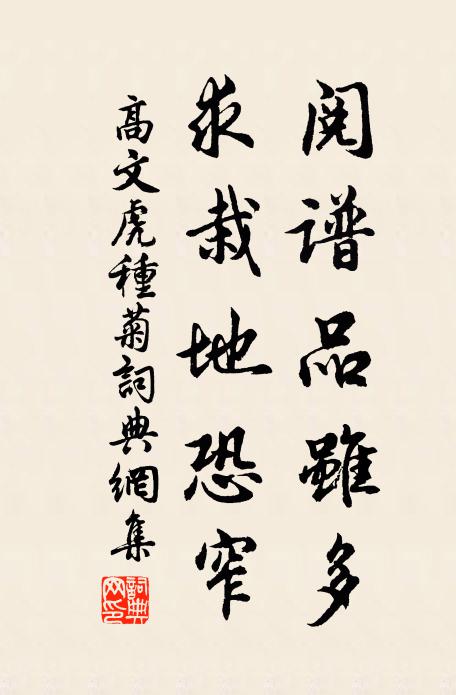 閱谱品雖多
求栽地恐窄
高文虎種菊詞典網集
詞典网印